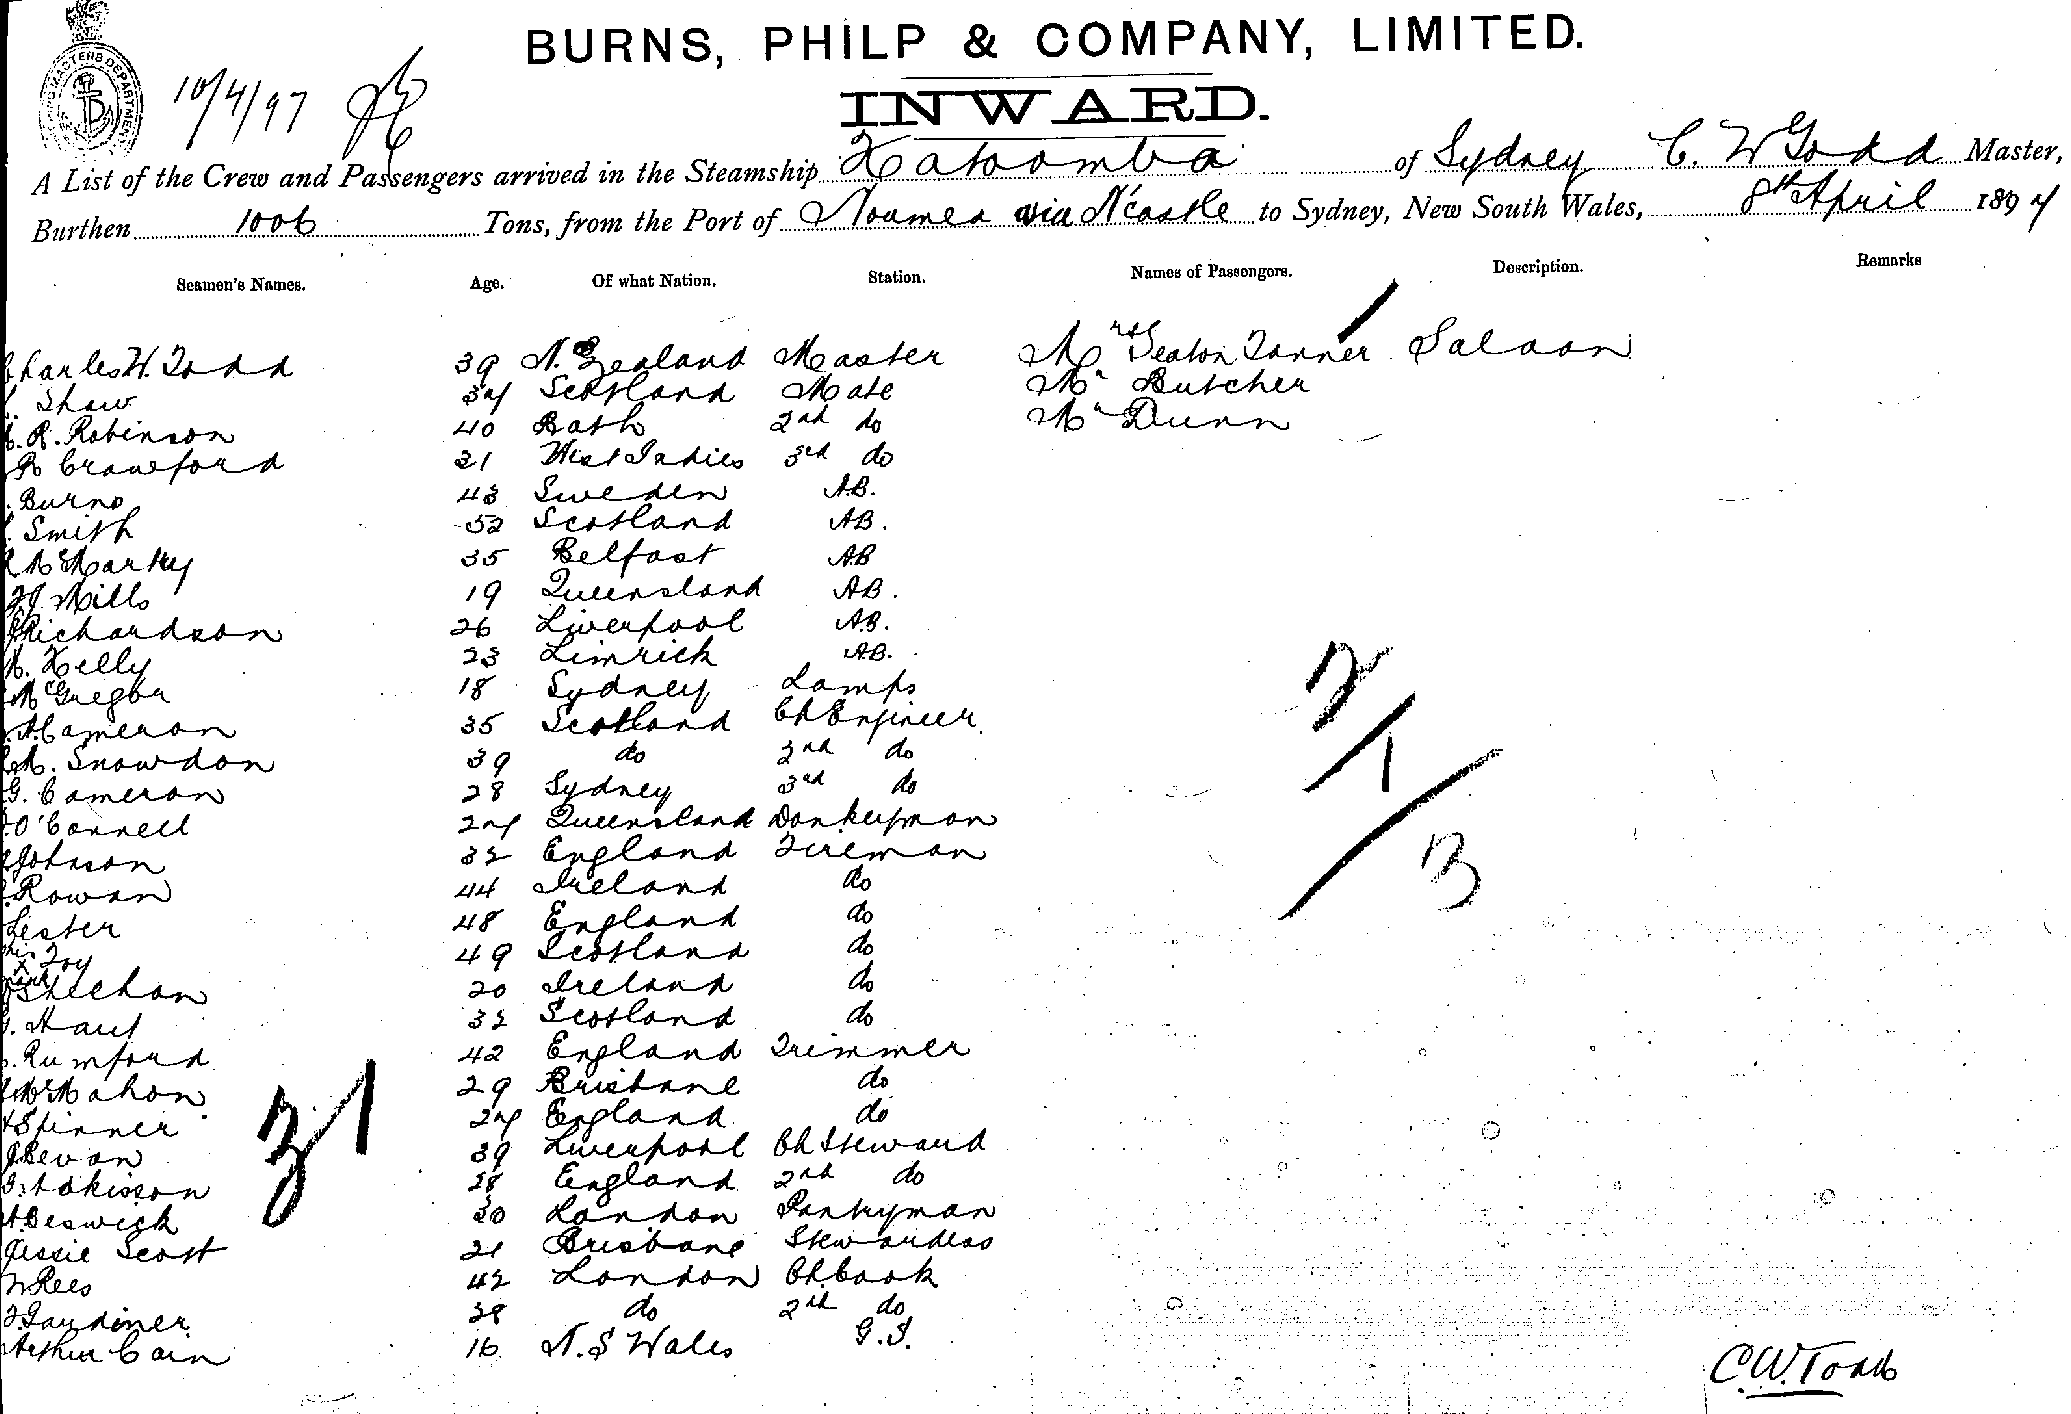 BURNS, PHILP & COMPANY, LIMITED.
INWARD.
10/4/97
A List of the Crew and Passengers arrived in the Steamship Katoomba of Sydney C. W Todd Master,
Burthen 1006 Tons, from the Port of Noumea via N'castle to Sydney, New South Wales, 8th April 1897
Seamen's Names. Age. Of what Nation. Station. Names of Passengers. Description. Remarks
Charles W. Todd 39 N. Zealand Master Mrs Seaton Tanner Saloon
Shaw 37 Scotland Mate Mr Butcher
R. Robinson 40 Bath 2nd do Mr Dunn
Crawford 21 West Indies 3rd do
Burns 43 Sweden A.B.
Smith 52 Scotland A.B.
McMarthy 35 Belfast A.B
Mills 19 Queensland A.B.
Richardson 26 Liverpool A.B.
Kelly 23 Limrick A.B.
McGregor 18 Sydney Lamps
Cameron 35 Scotland Ch Engineer
M. Snowdon 39 do 2nd do
G. Cameron 28 Sydney 3rd do
O'Connell 27 Queensland Donkeyman
Johnson 32 England Fireman
Rowan 44 Ireland do
Lester 48 England do
his x mark Foy 49 Scotland do
Sheehan 20 Ireland do
32 Scotland do
Rumford 42 England Trimmer
McMahon 29 Brisbane do
Spinner 27 England do
Bevan 39 Liverpool Ch Steward
Adkisson 28 England 2nd do
Beswick 30 London Pantryman
Jessie Scott 21 Brisbane Stewardess
W Rees 42 London Ch. Cook
Gardiner 38 do 2nd do
Arthur Cain 16 N. S Wales G.S.
31
2/1
3
C.W. Todd